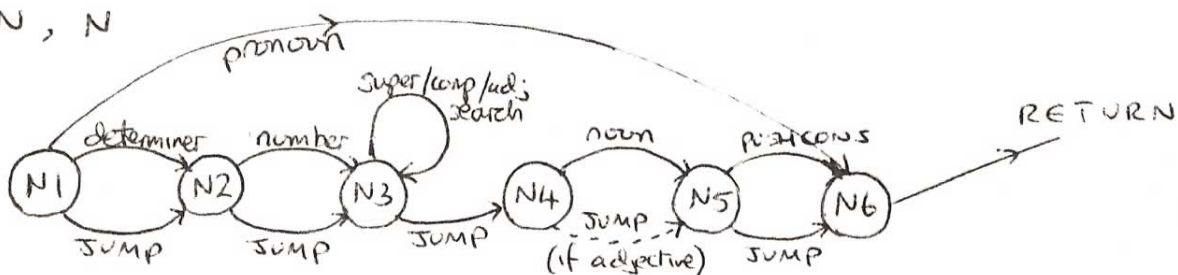 N, N
pronoun
super/comp/adj
search
RETURN
determiner
number
noun
PUSH CONS
N1
N2
N3
N4
N5
N6
JUMP
JUMP
JUMP
JUMP
(if adjective)
JUMP